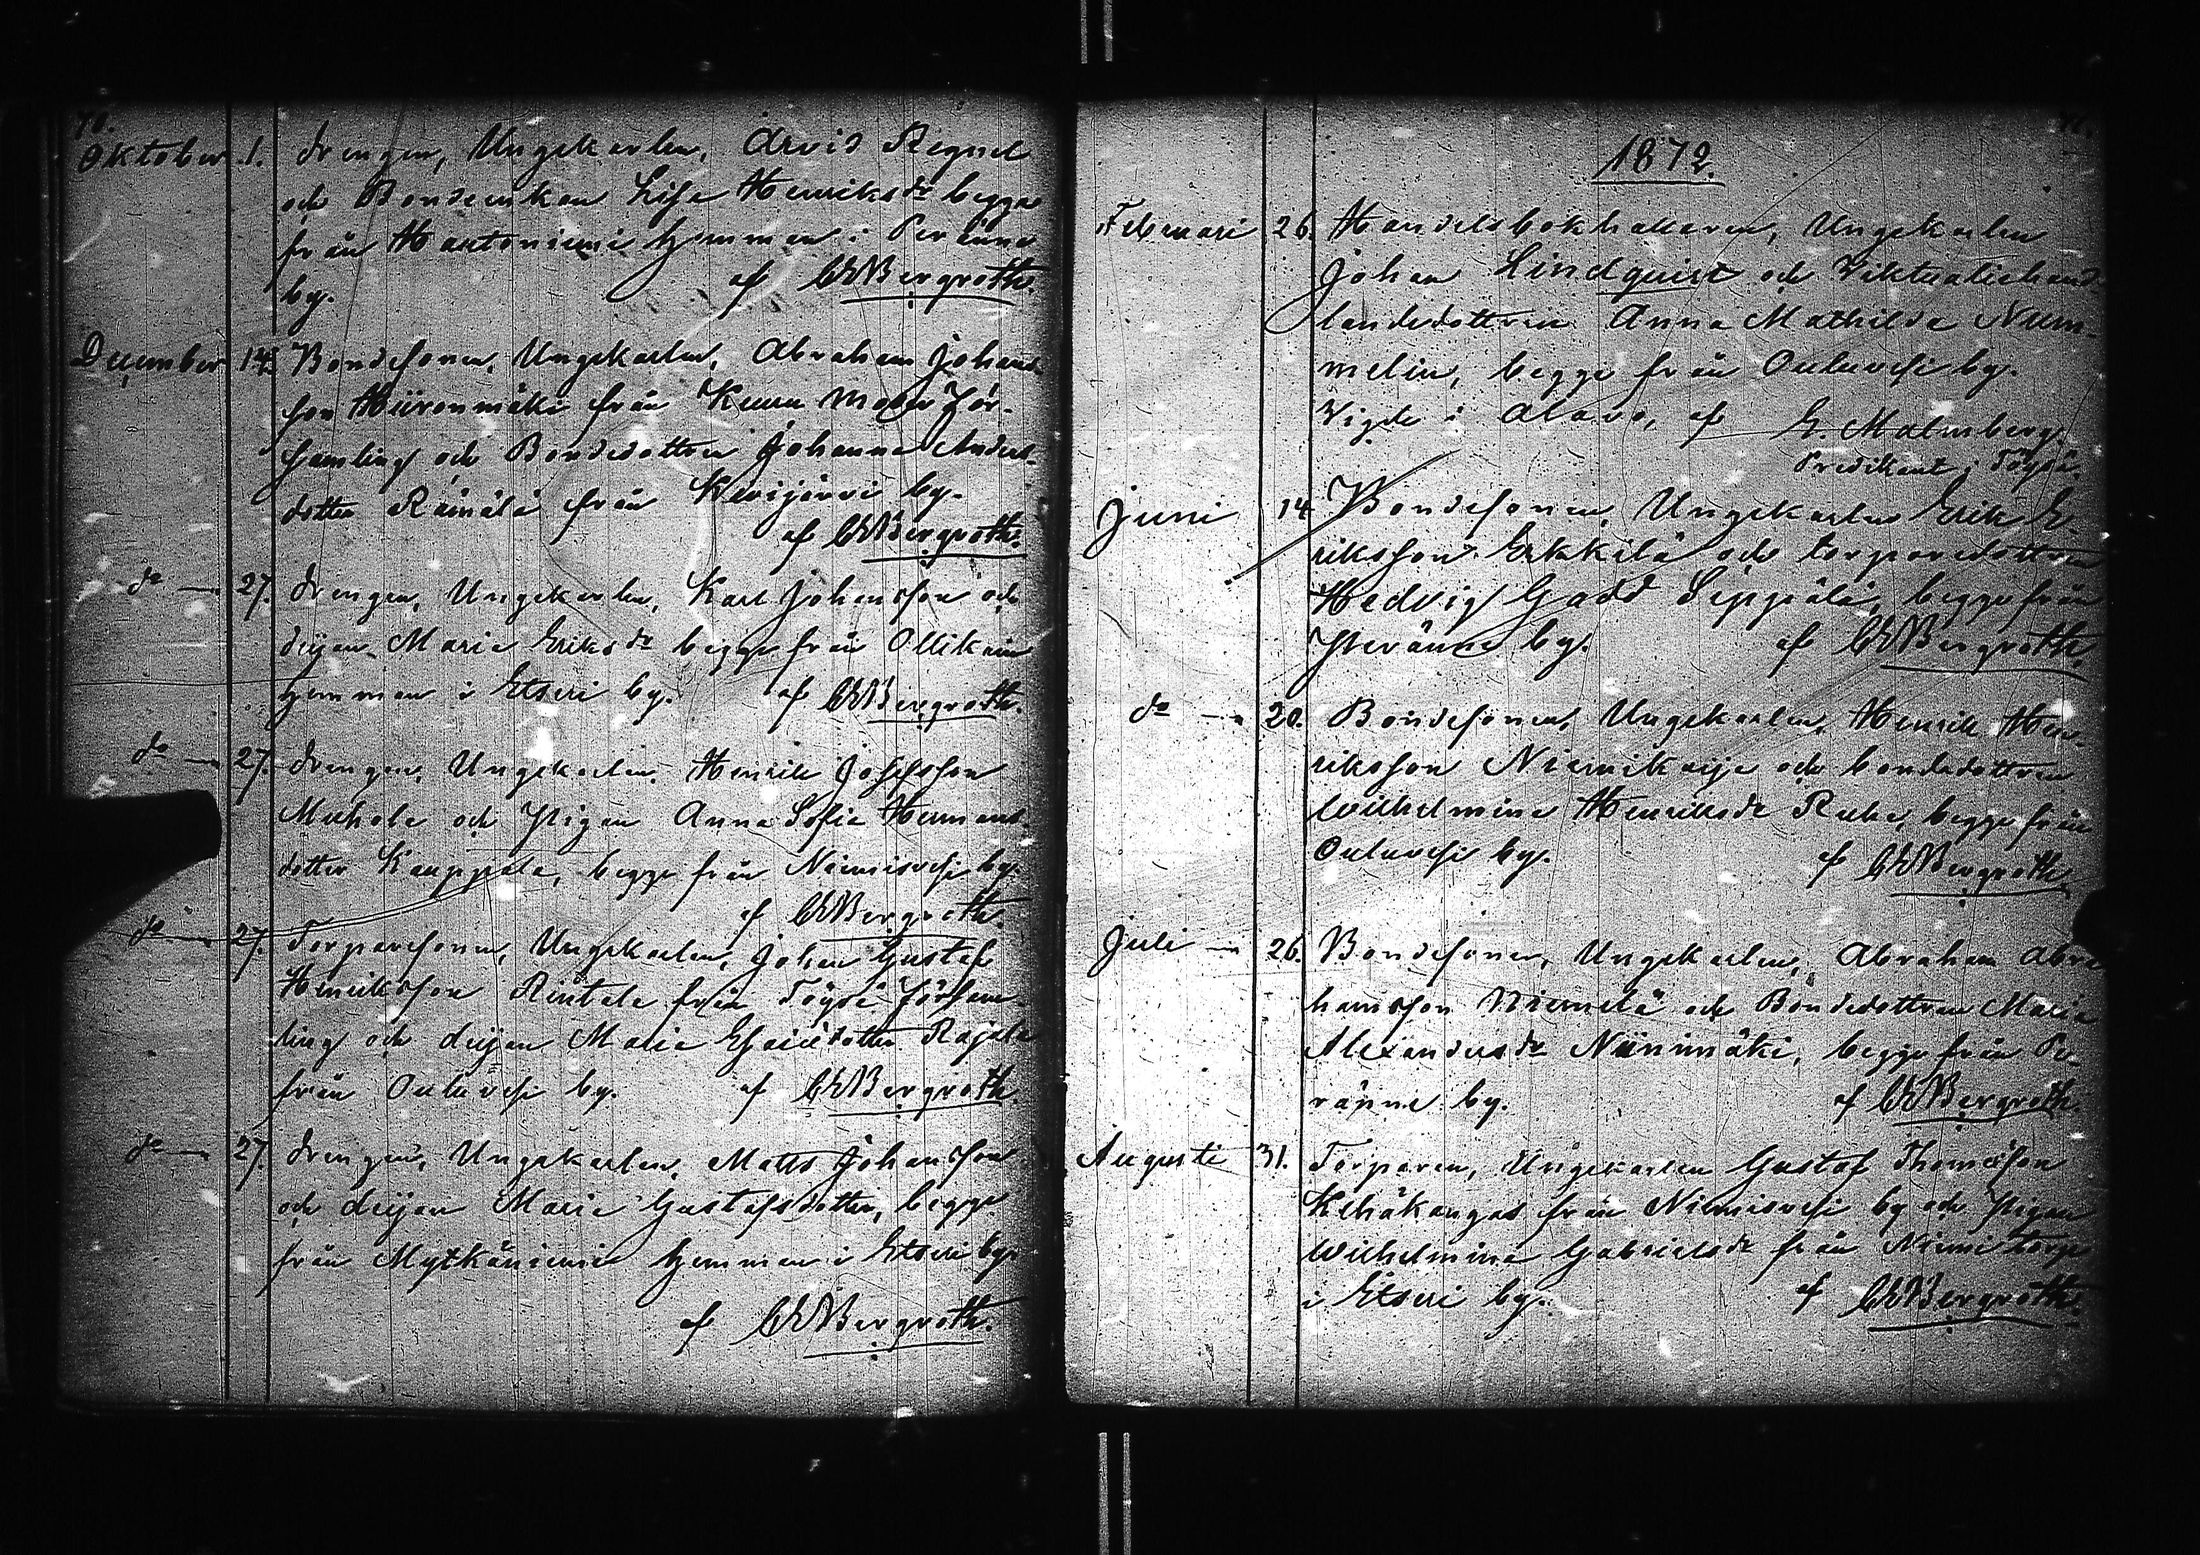 70.
Oktober 1. Drengen, Ungekarlen, Arvid Regnel
och Bondeenkan Lisa Henriksdr begge
från Hautoniemi hemman i Peränne
by. af CEBergroth.
December 14. Bondesonen, Ungekarlen, Abraham Johans-
son Hiironmäki från Keuru Moder För-
samling och Bondedottren Johanna Anders-
dotter Rämälä från Kivijärvi by.
af CEBergroth.
do — 27. Drengen, Ungekarlen, Karl Johansson och
deijan Maria Eriksdr begge från Ollikain
hemman i Etseri by. af CEBergroth.
do — 27. Drengen, Ungekarlen, Henrik Josefsson
och Pigan Anna Sofia Hermans-
dotter Kauppala, begge från Niemisvesi by.
af CEBergroth.
do — 27. Torparesonen, Ungekarlen, Johan Gustaf
Henriksson Rintala från Töysä Försam-
ling och deijan Maria Esaiædotter Rajala
från Ouluvesi by. af CEBergroth.
do — 27. Drengen, Ungekarlen, Matts Johansson
och deijan Maria Gustafsdotter, begge
från Mytkäniemi hemman i Etseri by.
af CEBergroth.
71.
1872.
Februari 26. Handelsbokhållaren, Ungekarlen
Johan Lindquist och Viktualiehand-
landedottren Anna Mathilda Num-
melin, begge från Ouluvesi by.
Vigde i Alavo, af E. Malmberg.
Predikant i Töysä.
Juni 14 Bondesonen, Ungekarlen Erik E-
riksson Erkkilä och torparedottren
Hedvig Gadd Seppälä, begge från
Peränne by. af CEBergroth.
do — 20. Bondesonen, Ungekarlen, Henrik Hen-
riksson Niemikorpi och bondedottren
Wilhelmina Henriksdr Ruha, begge från
Ouluvesi by. af CEBergroth.
Juli — 26. Bondesonen, Ungekarlen, Abraham Abra-
hamsson Niemelä och Bondedottren Maria
Alexandersdr Niinimäki, begge från Pe-
ränne by. af CEBergroth.
Augusti 31. Torparen, Ungekarlen Gustaf Thomasson
Kehäkangas från Niemisvesi by och Pigan
Wilhelmina Gabrielsdr från Niemi torp
i Etseri by. af CEBergroth.